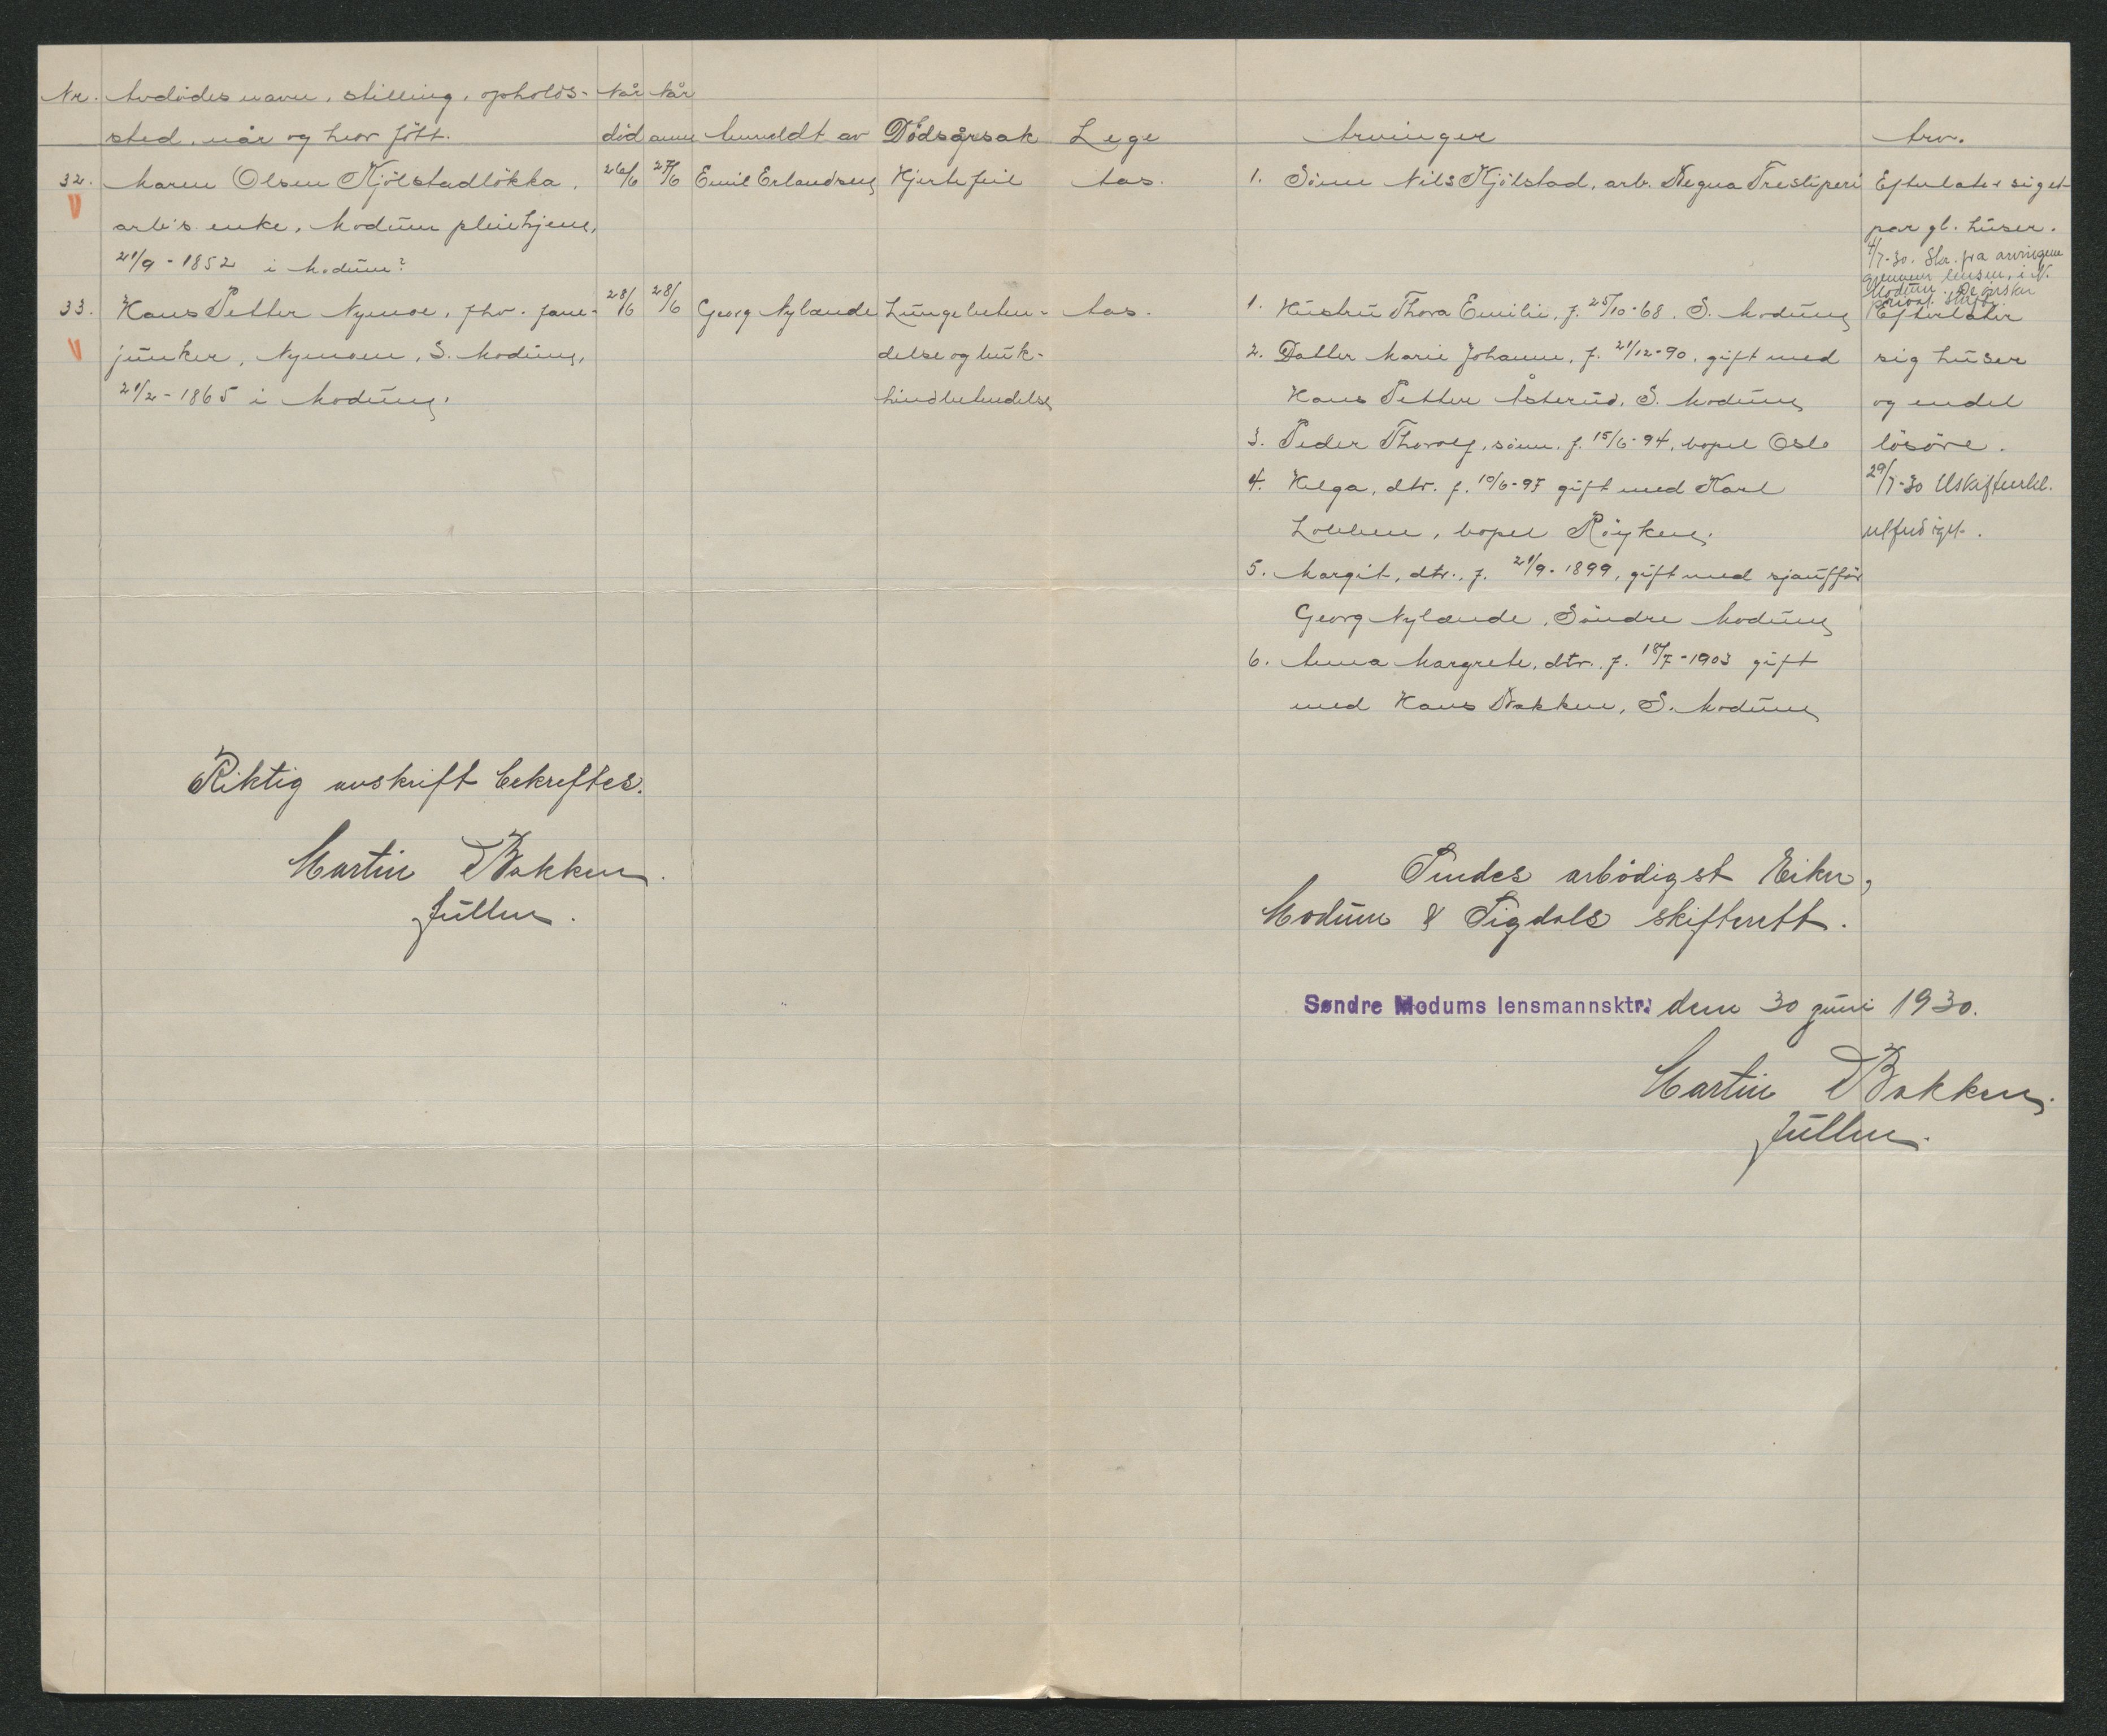 Nr. Avdødes navn, stilling, opholds- Når Når
sted, når og hvor født. død anm. Anmeldt av Dødsårsak Lege Arvinger Arv.
32. Maren Olsen Kjölstadløkka, 26/6 27/6 Emil Erlandsen Hjertefeil Aas. 1. Sønn Nils Kjölstad, arb. Efterlater sig et
V arb's enke, Modum pleiehjem, par gl. huser.
21/9-1852 i Modum?
4/7-30. Skr. fra arvingene
gjennem lensm. i N.
Modum. De ønsker
privat skifte.
33. Hans Petter Nymoe, fhv. fane- 28/6 28/6 Georg Nylænde Lungebeten- Aas. 1. Hustru Thora Emilie, f. 25/10-68. S. Modum Efterlater
V junker, Nymoen, S. Modum, delse og buk- 2. Datter Marie Johanne, f. 21/12-90, gift med sig huser
21/2-1865 i Modum. hindbetendelse Hans Petter Åsterud, S. Modum og endel
3. Peder Thorolf, sønn, f. 15/6-94, bopel Oslo løsøre.
4. Helga, dtr. f. 10/6-97 gift med Karl 29/7-30 Uskifterbl.
bopel Røyken. utferdiget.
5. Margit, dtr., f. 21/9-1899, gift med sjauffør
Georg Nylænde, Søndre Modum
6. Anna Margrete, dtr. f. 18/7-1903 gift
med Hans Bakken, S. Modum
Riktig avskrift bekreftes.
Martin Bakken
fullm.
Sendes ærbødigst Eiker,
Modum & Sigdals skifterett.
Søndre Modums lensmannsktr. dem 30 juni 1930.
Martin Bakken
fullm.